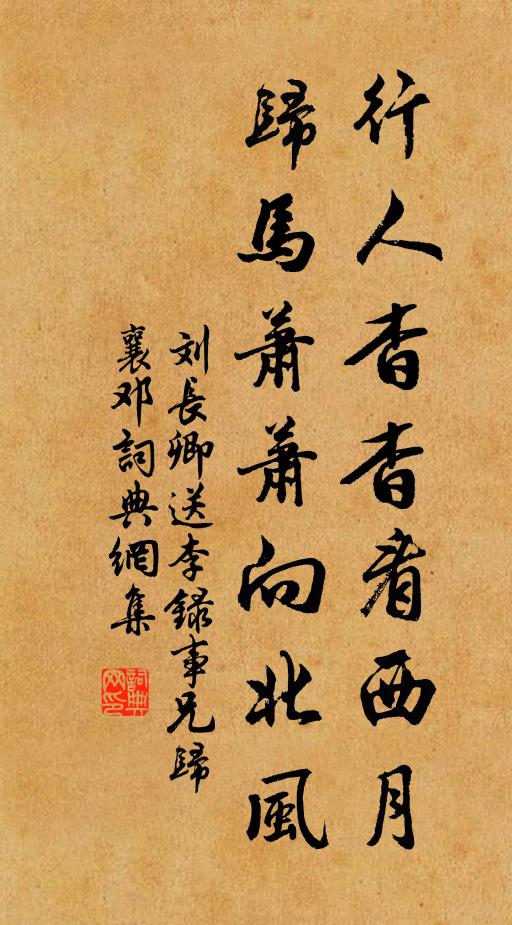 行人杳杳看西月
歸馬蕭蕭向北風
刘長卿送李録事兄歸
襄邓詞典網集
詞典网印